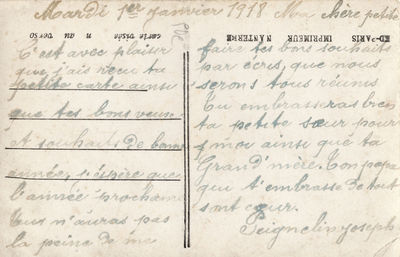 Mardi 1er Janvier 1918 Ma chère petite
C'est avec plaisir
que j'ais reçu ta
petite carte ainsi
que tes bons veux
et souhaits de bonne
année, j'éspère que
l'année prochaine
tu n'auras pas
la peine de me
faire tes bons souhaits
par écris, que nous
serons tous réunis
Tu embrasseras bien
ta petite sœur pour
moi ainsi que ta
Grand'mère. Ton papa
qui t'embrasse de tout
sont cœur.
Joseph
ED-PARIS IMPRIMEUR NANTERRE